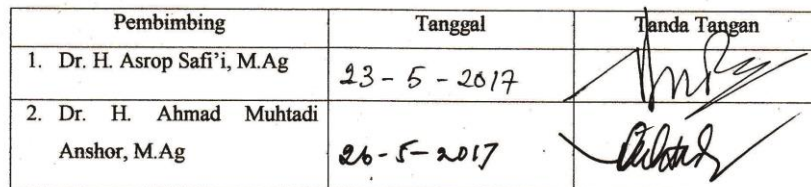 Pembimbing Tanggal Tanda Tangan
1. Dr. H. Asrop Safi'i, M.Ag 23 - 5 - 2017
2. Dr. H. Ahmad Muhtadi
Anshor, M.Ag 26 - 5 - 2017